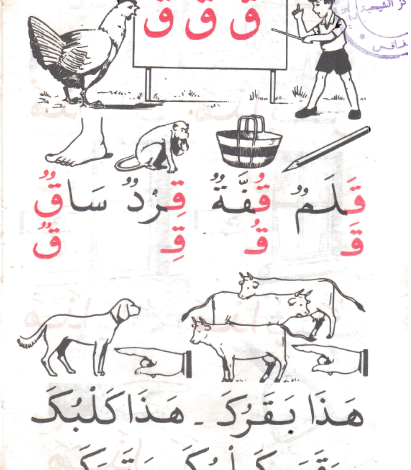 قَ قُ قِ
قَلَمٌ قُفَّةٌ قِرْدٌ سَاقٌ
قَ قُ قِ قٌ
هَذَا بَقَرُكَ . هَذَا كَلْبُكَ